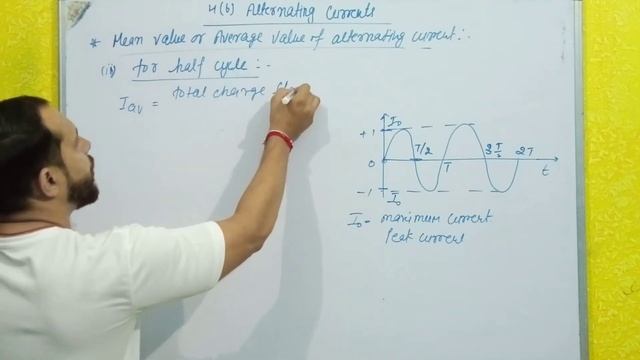 4(b) Alternating Currents
* Mean value or Average value of alternating current :-
(ii) for half cycle :-
Iav = total charge fl
+1 I0
0 T/2 T 3T/2 2T t
-1 I0
I0 = maximum current
Peak current